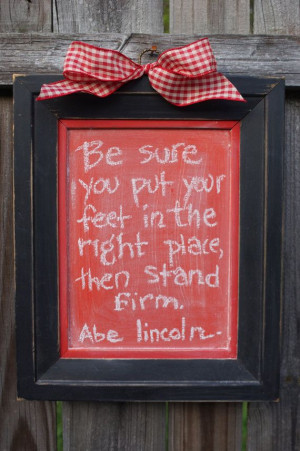 Be sure
you put your
feet in the
right place,
then stand
Firm.
Abe lincoln-